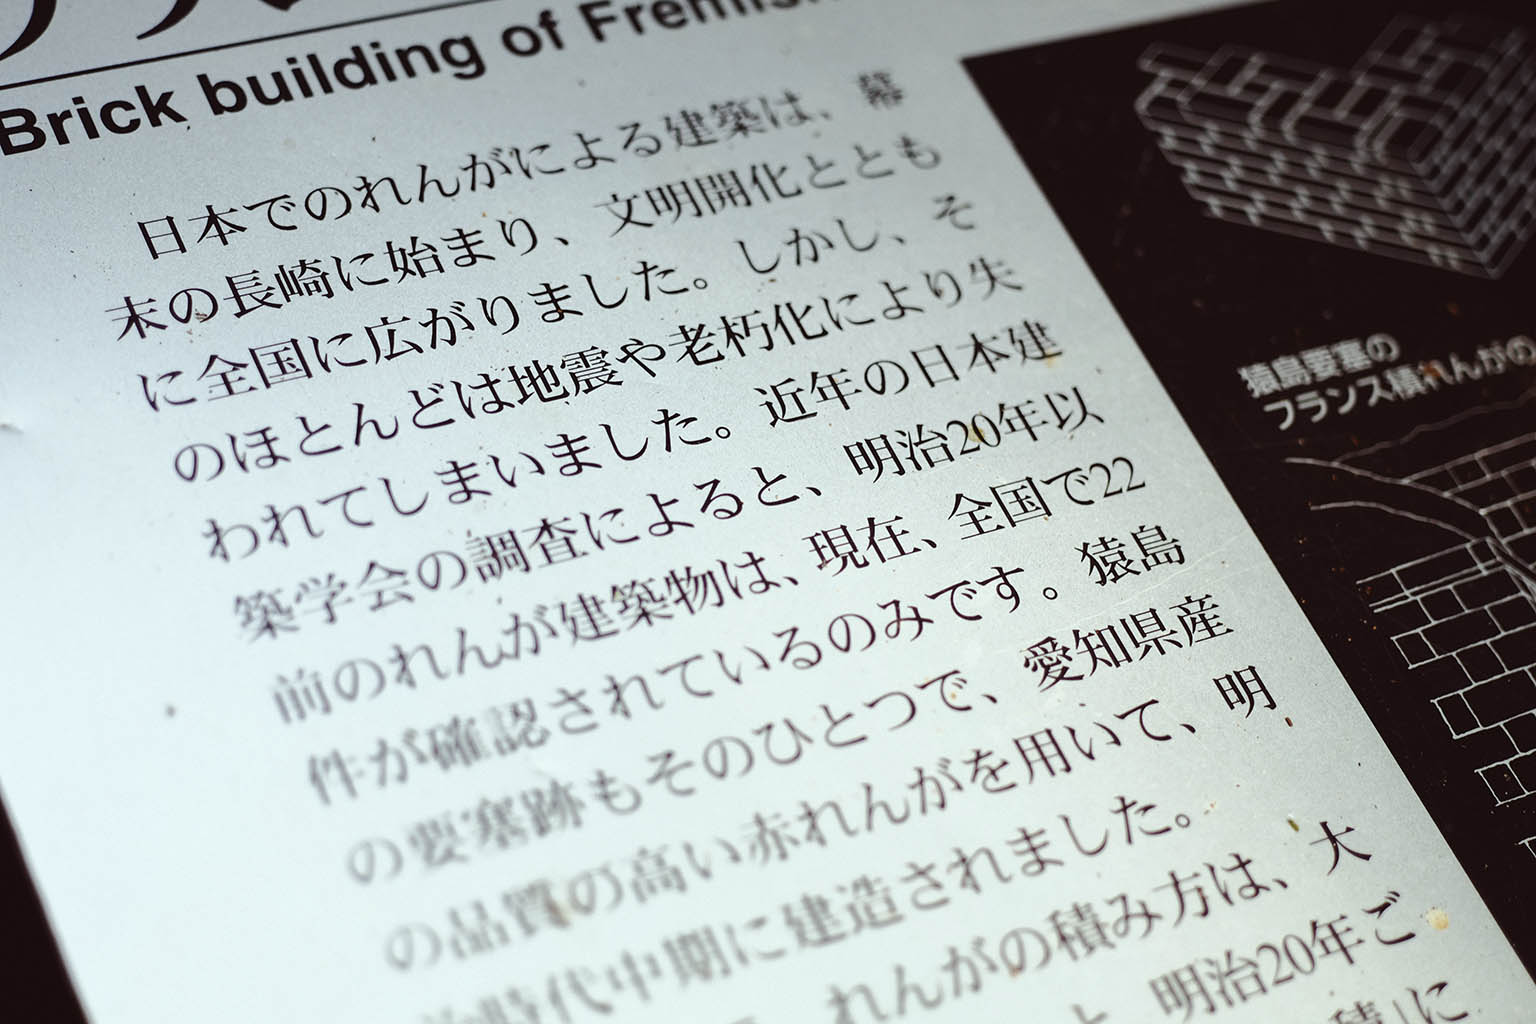 Brick building of Fremish
日本でのれんがによる建築は、幕
末の長崎に始まり、文明開化ととも
に全国に広がりました。しかし、そ
のほとんどは地震や老朽化により失
われてしまいました。近年の日本建
築学会の調査によると、明治20年以
前のれんが建築物は、現在、全国で22
件が確認されているのみです。猿島
の要塞跡もそのひとつで、愛知県産
の品質の高い赤れんがを用いて、明
治時代中期に建造されました。
れんがの積み方は、大
と、明治20年ご
積」に
猿島要塞の
フランス積れんがの